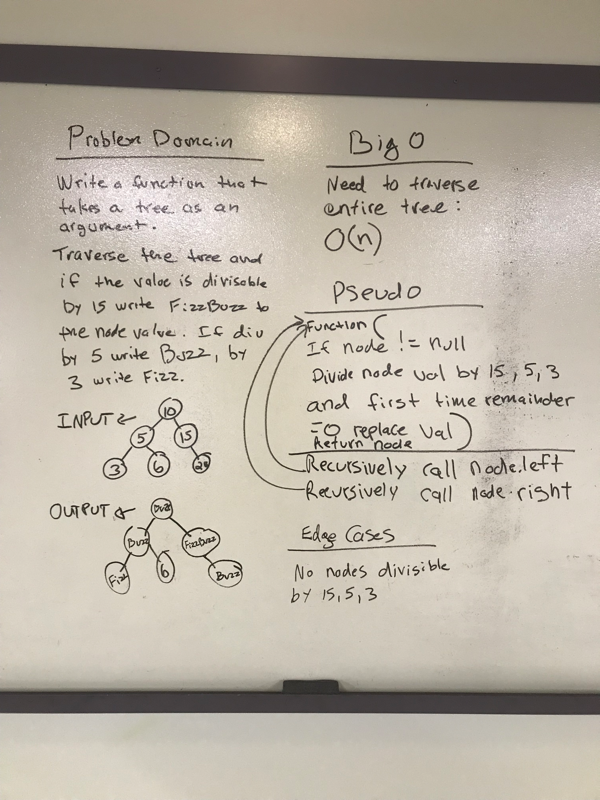 Problem Domain
Write a function that
takes a tree as an
argument.
Traverse the tree and
if the value is divisable
by 15 write FizzBuzz to
the node value. If div
by 5 write Buzz, by
3 write Fizz.
INPUT
10
5 15
3 6 20
OUTPUT
Buzz
Buzz FizzBuzz
Fizz 6 Buzz
Big O
Need to traverse
entire tree:
O(n)
Pseudo
Function (
If node != null
Divide node val by 15, 5, 3
and first time remainder
=0 replace val)
Return node
Recursively call node.left
Recursively call node.right
Edge Cases
No nodes divisible
by 15, 5, 3